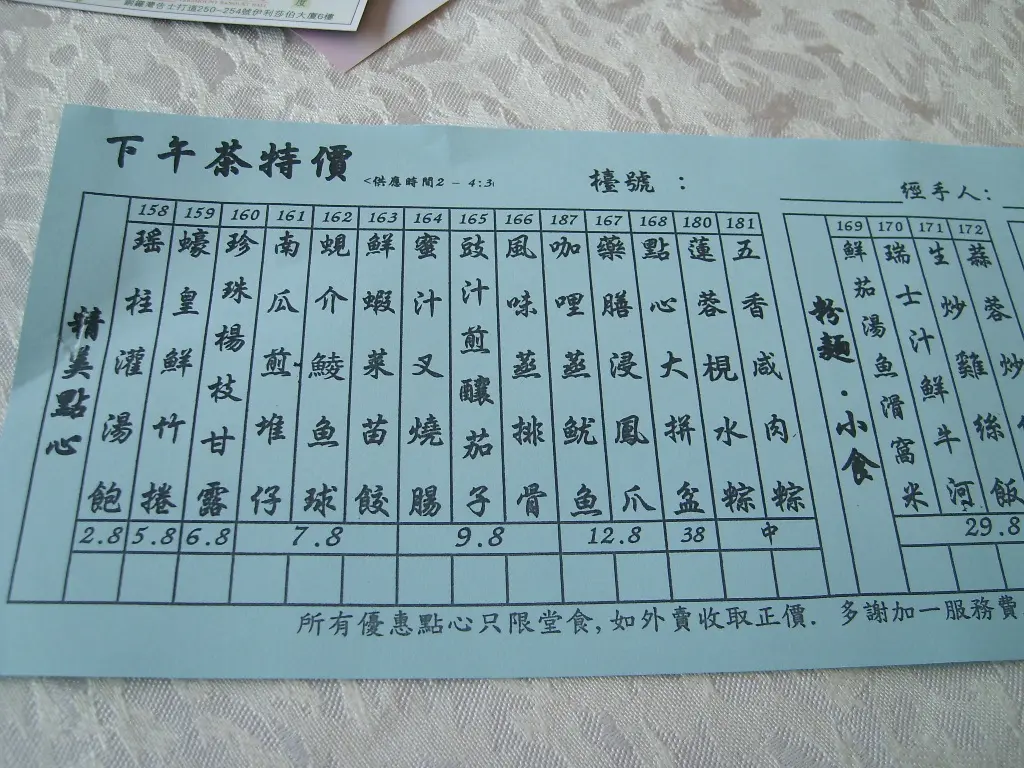 銅鑼灣告士打道250-254號伊利莎伯大廈6樓
下午茶特價
<供應時間2 - 4:3
檯號 :
經手人:
精美點心
158 瑤柱灌湯飽
159 蠔皇鮮竹捲
160 珍珠楊枝甘露
161 南瓜煎堆仔
162 蜆介鯪魚球
163 鮮蝦菜苗餃
164 蜜汁叉燒腸
165 豉汁煎釀茄子
166 風味蒸排骨
187 咖哩蒸魷魚
167 藥膳浸鳳爪
168 點心大拼盆
180 蓮蓉梘水粽
181 五香咸肉粽
2.8 5.8 6.8 7.8 9.8 12.8 38 中
粉麵·小食
169 鮮茄湯魚滑窩米
170 瑞士汁鮮牛河
171 生炒雞絲飯
172 蒜蓉炒
29.8
所有優惠點心只限堂食,如外賣收取正價. 多謝加一服務費